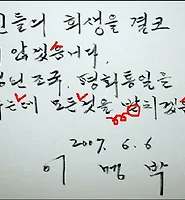 들의 희생을 결코
않겠읍니다.
조국, 평화통일을
는데 모든것을 받치겠
2007. 6. 6
이 명 박